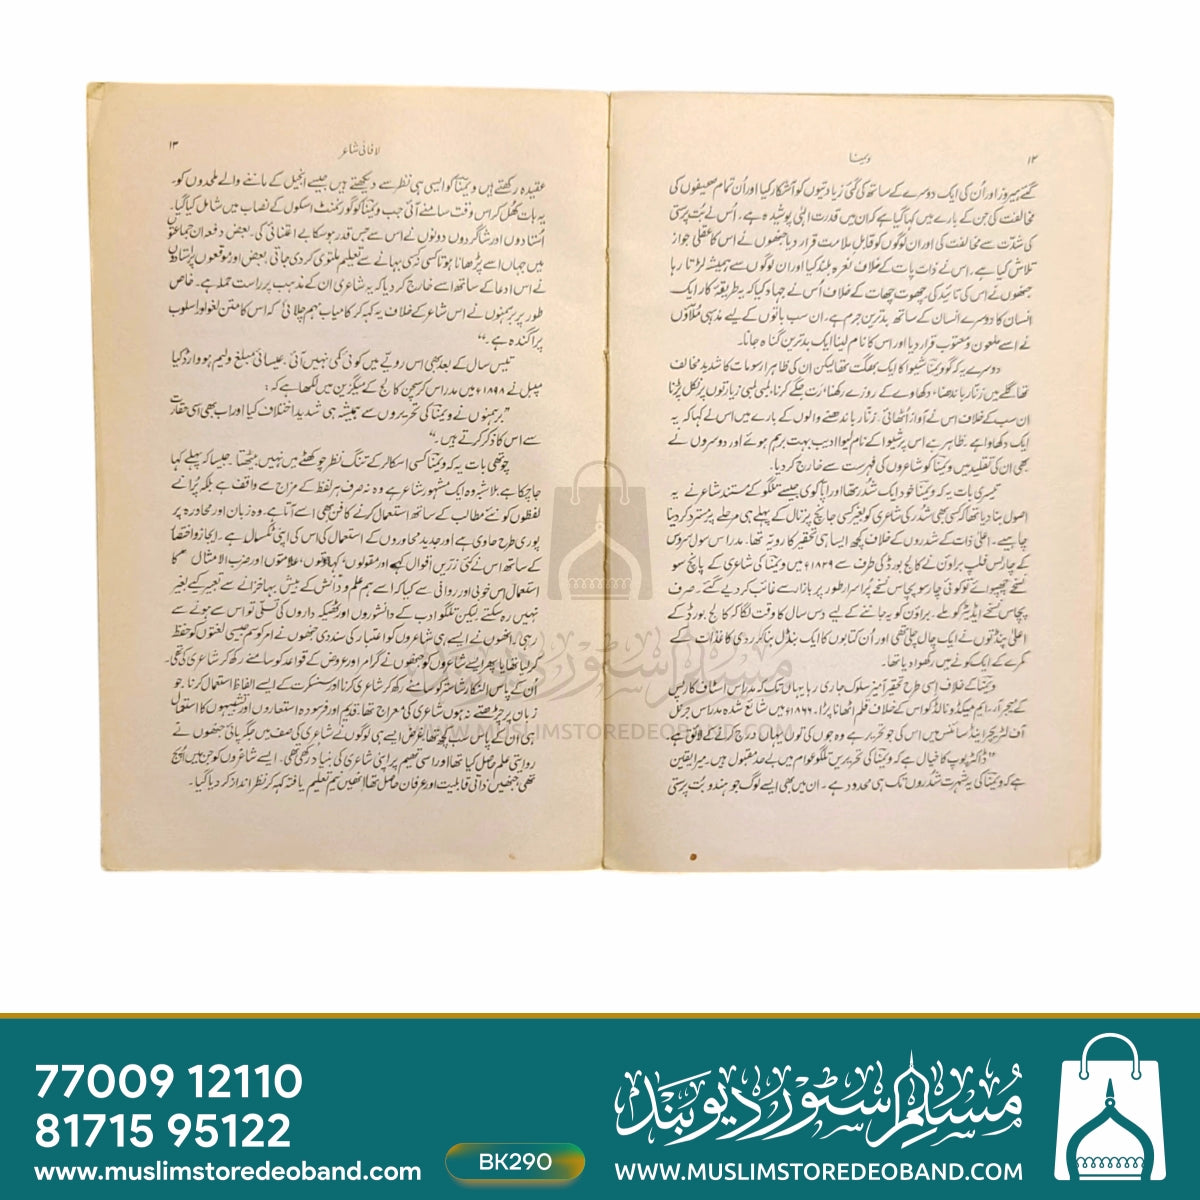 ۱۲
ویمنا
گئے ہیروز اور اُن کی ایک دوسرے کے ساتھ کی گئی زیادتیوں کو آشکار کیا اور اُن تمام صحیفوں کی
مخالفت کی جن کے بارے میں کہا گیا ہے کہ ان میں قدرت الٰہی پوشیدہ ہے۔ اُس نے بُت پرستی
کی شدّت سے مخالفت کی اور ان لوگوں کو قابل ملامت قرار دیا جنھوں نے اس کا عقلی جواز
تلاش کیا ہے۔ اس نے ذات پات کے خلاف نعرہ بلند کیا اور ان لوگوں سے ہمیشہ لڑتا رہا
جنھوں نے اس کی تائید کی چھوت چھات کے خلاف اُس نے جہاد کیا کہ یہ طریقۂ کار ایک
انسان کا دوسرے انسان کے ساتھ بدترین جرم ہے۔ ان سب باتوں کے لیے مذہبی ملاّؤں
نے اسے ملعون و معتوب قرار دیا اور اس کا نام لینا ایک بدترین گناہ جانا۔
دوسرے یہ کہ گو ویمنا شیوا کا ایک بھگت تھا لیکن ان کی ظاہر رسومات کا شدید مخالف
تھا۔ گلے میں زنّار باندھنا، دکھاوے کے روزے رکھنا، رت جگے کرنا، لمبی لمبی زیارتوں پر نکل پڑنا
ان سب کے خلاف اس نے آواز اُٹھائی۔ زنّار باندھنے والوں کے بارے میں اس نے کہا کہ یہ
ایک دکھاوا ہے۔ ظاہر ہے اس پر شیوا کے نام لیوا ادیب بہت برہم ہوئے اور دوسروں نے
بھی ان کی تقلید میں ویمنا کو شاعروں کی فہرست سے خارج کر دیا۔
تیسری بات یہ کہ ویمنا خود ایک شُدر تھا اور اپّا کوی جیسے تلگو کے مستند شاعر نے یہ
اصول بنا دیا تھا کہ کسی بھی شُدر کی شاعری کو بغیر کسی جانچ پڑتال کے پہلے ہی مرحلے پر مسترد کر دینا
چاہیے۔ اعلیٰ ذات کے شدروں کے خلاف کچھ ایسا ہی تحقیر کا رویہ تھا۔ مدراس سول سروس
کے چارلس فلپ براؤن نے کالج بورڈ کی طرف سے ۱۸۲۹ء میں ویمنا کی شاعری کے پانچ سو
نسخے چھپوائے تو کوئی چار سو پچاس نسخے پُراسرار طور پر بازار سے غائب کر دیے گئے۔ صرف
پچاس نسخے ایڈیٹر کو ملے۔ براؤن کو یہ جاننے کے لیے دس سال کا وقت لگا کہ کالج بورڈ کے
اعلیٰ پنڈتوں نے ایک چال چلی تھی اور اُن کتابوں کا ایک بنڈل بنا کر ردی کاغذات کے
کمرے کے ایک کونے میں رکھوا دیا تھا۔
ویمنا کے خلاف اِسی طرح تحقیر آمیز سلوک جاری رہا یہاں تک کہ مدراس اسٹاف کارپس
کے میجر آر۔ ایم میکڈونالڈ کو اس کے خلاف قلم اٹھانا پڑا۔ ۱۸۶۶ء میں شائع شدہ مدراس جرنل
آف لٹریچر اینڈ سائنس میں اس کی جو تحریر ہے وہ جوں کی توں یہاں درج کرنے کے لائق ہے
"ڈاکٹر پوپ کا خیال ہے کہ ویمنا کی تحریریں تلگو عوام میں بے حد مقبول ہیں۔ میرا یقین
ہے کہ ویمنا کی یہ شہرت شُدروں تک ہی محدود ہے۔ ان میں بھی ایسے لوگ جو ہندو بُت پرستی
لافانی شاعر
۱۳
عقیدہ رکھتے ہیں ویمنا کو ایسی ہی نظر سے دیکھتے ہیں جیسے انجیل کے ماننے والے ملحدوں کو۔
یہ بات کھُل کر اس وقت سامنے آئی جب ویمنا کو گورنمنٹ اسکوں کے نصاب میں شامل کیا گیا۔
اُستادوں اور شاگردوں دونوں نے اس سے جس قدر ہو سکا بے اعتنائی کی۔ بعض دفعہ ان جماعتوں
میں جہاں اسے پڑھانا ہوتا کسی کسی بہانے سے تعلیم ملتوی کر دی جاتی، بعض اور موقعوں پر استادوں
نے اس ادعا کے ساتھ اسے خارج کر دیا کہ یہ شاعری ان کے مذہب پر راست حملہ ہے۔ خاص
طور پر برہمنوں نے اس شاعر کے خلاف یہ کہہ کر کامیاب مہم چلائی کہ اس کا متن لغو اور اسلوب
پراگندہ ہے۔"
تیس سال کے بعد بھی اس رویے میں کوئی کمی نہیں آئی۔ عیسائی مبلغ ولیم ہووارڈ کیا
مپبل نے ۱۸۹۸ء میں مدراس کرسچن کالج کے میگزین میں لکھا ہے کہ:
"برہمنوں نے ویمنا کی تحریروں سے ہمیشہ ہی شدید اختلاف کیا اور اب بھی اسی حقارت
سے اس کا ذکر کرتے ہیں۔"
چوتھی بات یہ کہ ویمنا کسی اسکالر کے تنگ نظر چوکھٹے میں نہیں بیٹھتا۔ جیسا کہ پہلے کہا
جا چکا ہے بلاشبہ وہ ایک مشہور شاعر ہے وہ نہ صرف ہر لفظ کے مزاج سے واقف ہے بلکہ پرانے
لفظوں کو نئے مطالب کے ساتھ استعمال کرنے کا فن بھی اسے آتا ہے۔ وہ زبان اور محاورہ پر
پوری طرح حاوی ہے اور جدید محاوروں کے استعمال کی اس کی اپنی ٹکسال ہے۔ ایجاز و اختصار
کے ساتھ اس نے کئی زرّیں اقوال کہے اور مقولوں، کہاوتوں، علامتوں اور ضرب الامثال کا
استعمال اس خوبی اور روانی سے کیا کہ اسے ہم علم و دانش کے بیش بہا خزانے سے تعبیر کیے بغیر
نہیں رہ سکتے لیکن تلگو ادب کے دانشوروں اور ٹھیکیداروں کی تسلی تو اس سے ہونے سے
رہی۔ انھوں نے ایسے ہی شاعروں کو اعتبار کی سند دی جنھوں نے امر کوسم جیسی لغتوں کو حفظ
کر لیا تھا یا پھر ایسے شاعروں کو جنھوں نے گرامر اور عروض کے قواعد کو سامنے رکھ کر شاعری کی تھی۔
اُن کے پاس النکار شاستر کو سامنے رکھ کر شاعری کرنا اور سنسکرت کے ایسے الفاظ استعمال کرنا۔ جو
زبان پر چڑھتے نہ ہوں شاعری کی معراج تھا۔ قدیم اور فرسودہ استعاروں اور تشبیہوں کا استعمال
ہی ان کے پاس سب کچھ تھا۔ غرض ایسے ہی لوگوں نے شاعری کی صف میں جگہ پائی جنھوں نے
روایتی علم حاصل کیا تھا اور اسی تفہیم پر اپنی شاعری کی بنیاد رکھی تھی۔ ایسے شاعروں کو جن میں اُپج
تھی جنھیں ذاتی قابلیت اور عرفان حاصل تھا انھیں نیم تعلیم یافتہ کہہ کر نظر انداز کر دیا گیا۔
مسلم سٹور دیوبند
WWW.MUSLIMSTOREDEOBAND.COM
77009 12110
81715 95122
www.muslimstoredeoband.com
BK290
مسلم سٹور دیوبند
WWW.MUSLIMSTOREDEOBAND.COM